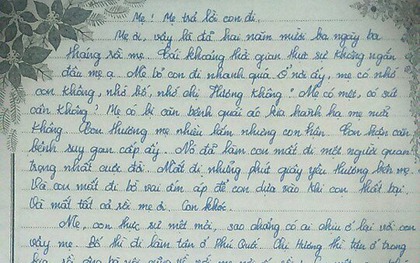 Mẹ! Mẹ trả lời con đi.
Mẹ ơi, vậy là đã hai năm mười ba ngày ba
tháng rồi mẹ. Cái khoảng thời gian thật sự không ngắn
đâu mẹ ạ. Mẹ bỏ con đi nhanh quá. Ở nơi ấy, mẹ có nhớ
con không, nhớ bố, nhớ chị Hường không? Mẹ có mệt, có sút
cân không? Mẹ có bị căn bệnh quái ác kia hành hạ mẹ nữa
không. Con thương mẹ nhiều lắm nhưng con hận. Con hận căn
bệnh suy gan cấp ấy. Nó đã làm con mất đi một người quan
trọng nhất cuộc đời. Mất đi những phút giây yêu thương bên mẹ.
Và con mất đi bờ vai ấm áp để con dựa vào khi con thất bại.
Và mất tất cả rồi mẹ ơi. Con khóc.
Mẹ, con thực sự mệt mỏi, sao chẳng có ai chịu ở lại với con
vậy mẹ. Bố thì đi làm tận ở Phú Quá. Chị Hường thì tận ở trong